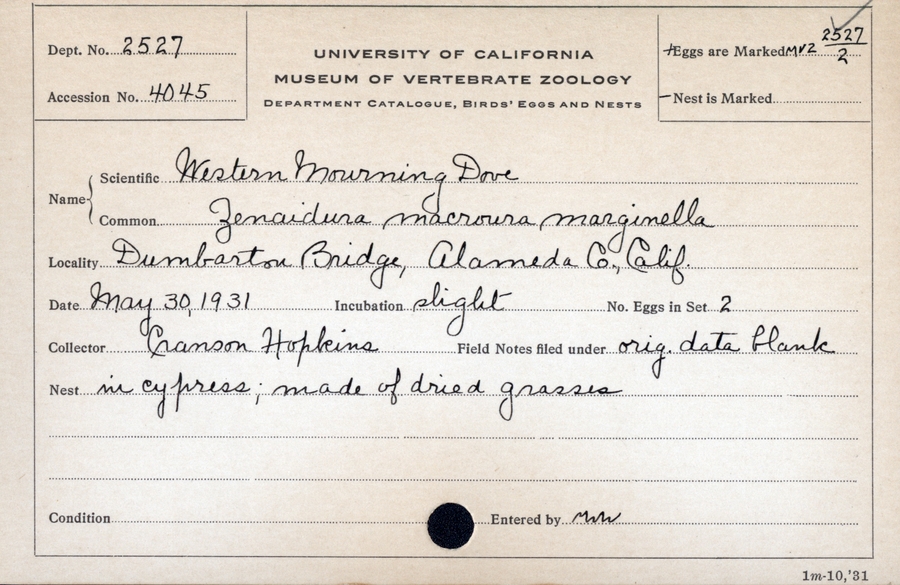 Dept. No. 2527
Accession No. 4045
UNIVERSITY OF CALIFORNIA
MUSEUM OF VERTEBRATE ZOOLOGY
DEPARTMENT CATALOGUE, BIRDS' EGGS AND NESTS
+Eggs are Marked MVZ 2527/2
-Nest is Marked
Name
Scientific Western Mourning Dove
Common Zenaidura macroura marginella
Locality Dumbarton Bridge, Alameda Co., Calif.
Date May 30, 1931 Incubation slight No. Eggs in Set 2
Collector Cranson Hopkins Field Notes filed under orig. data blank
Nest in cypress; made of dried grasses
Condition Entered by
1m-10,'31